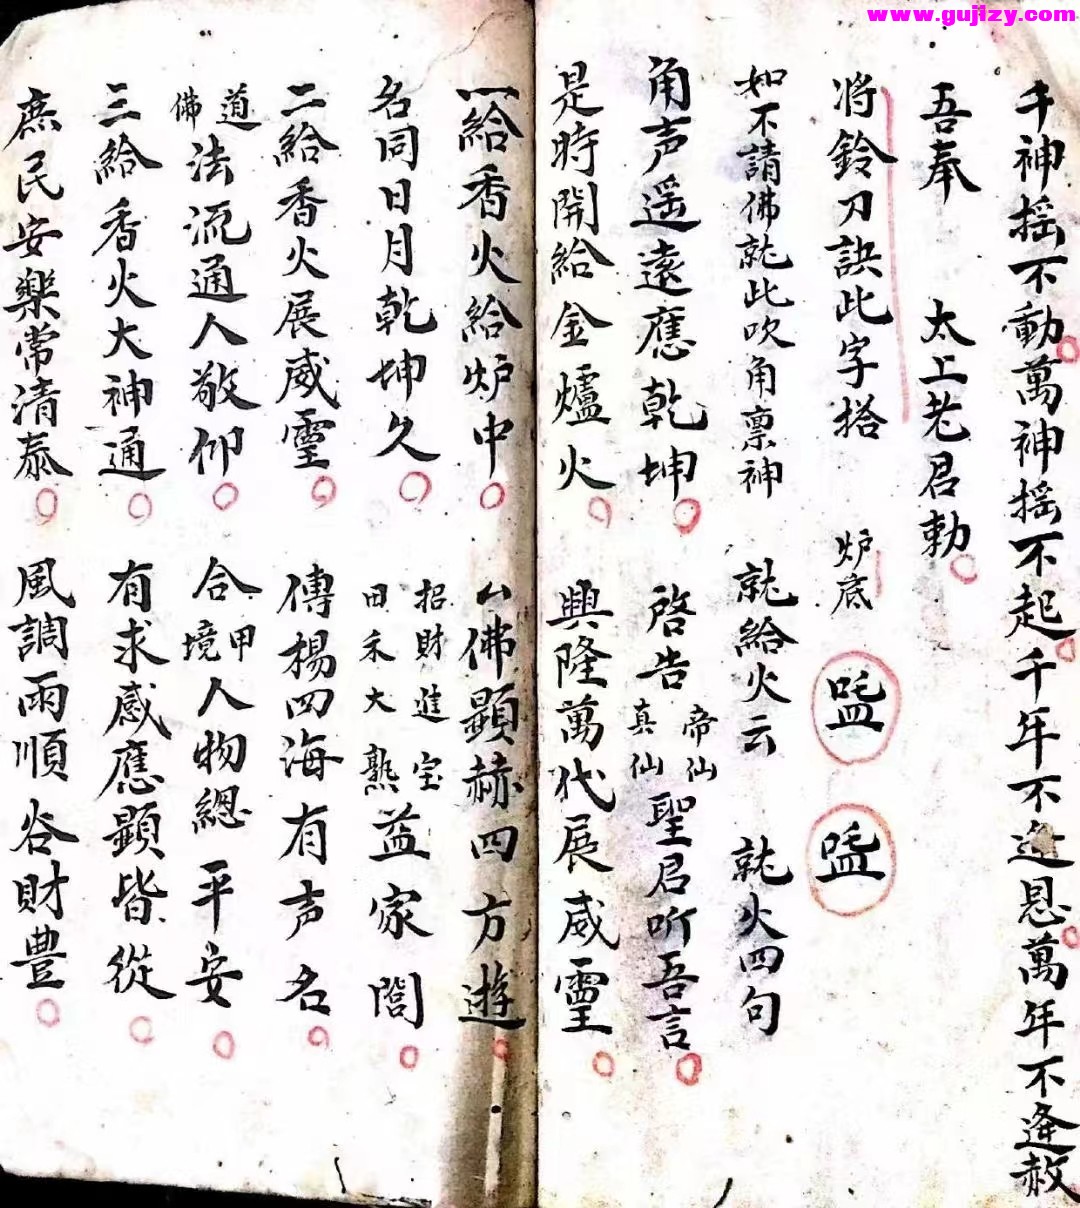 www.gujizy.com
千神摇不動萬神摇不起千年不逢恩萬年不逢赦
吾奉 太上老君勅
将鈴刀訣此字搭 炉底
如不請佛就此吹角禀神 就給火云 就火四句
角声遥遠應乾坤 啓告帝仙真仙聖君听吾言
是時開給金爐火 興隆萬代展威霊
一給香火給炉中 公佛顯赫四方遊
名同日月乾坤久 招財進宝田禾大熟益家閤
二給香火展威霊 傳楊四海有声名
道佛法流通人敬仰 合甲境人物總平安
三給香火大神通 有求感應顯皆從
庶民安樂常清泰 風調雨順谷財豊